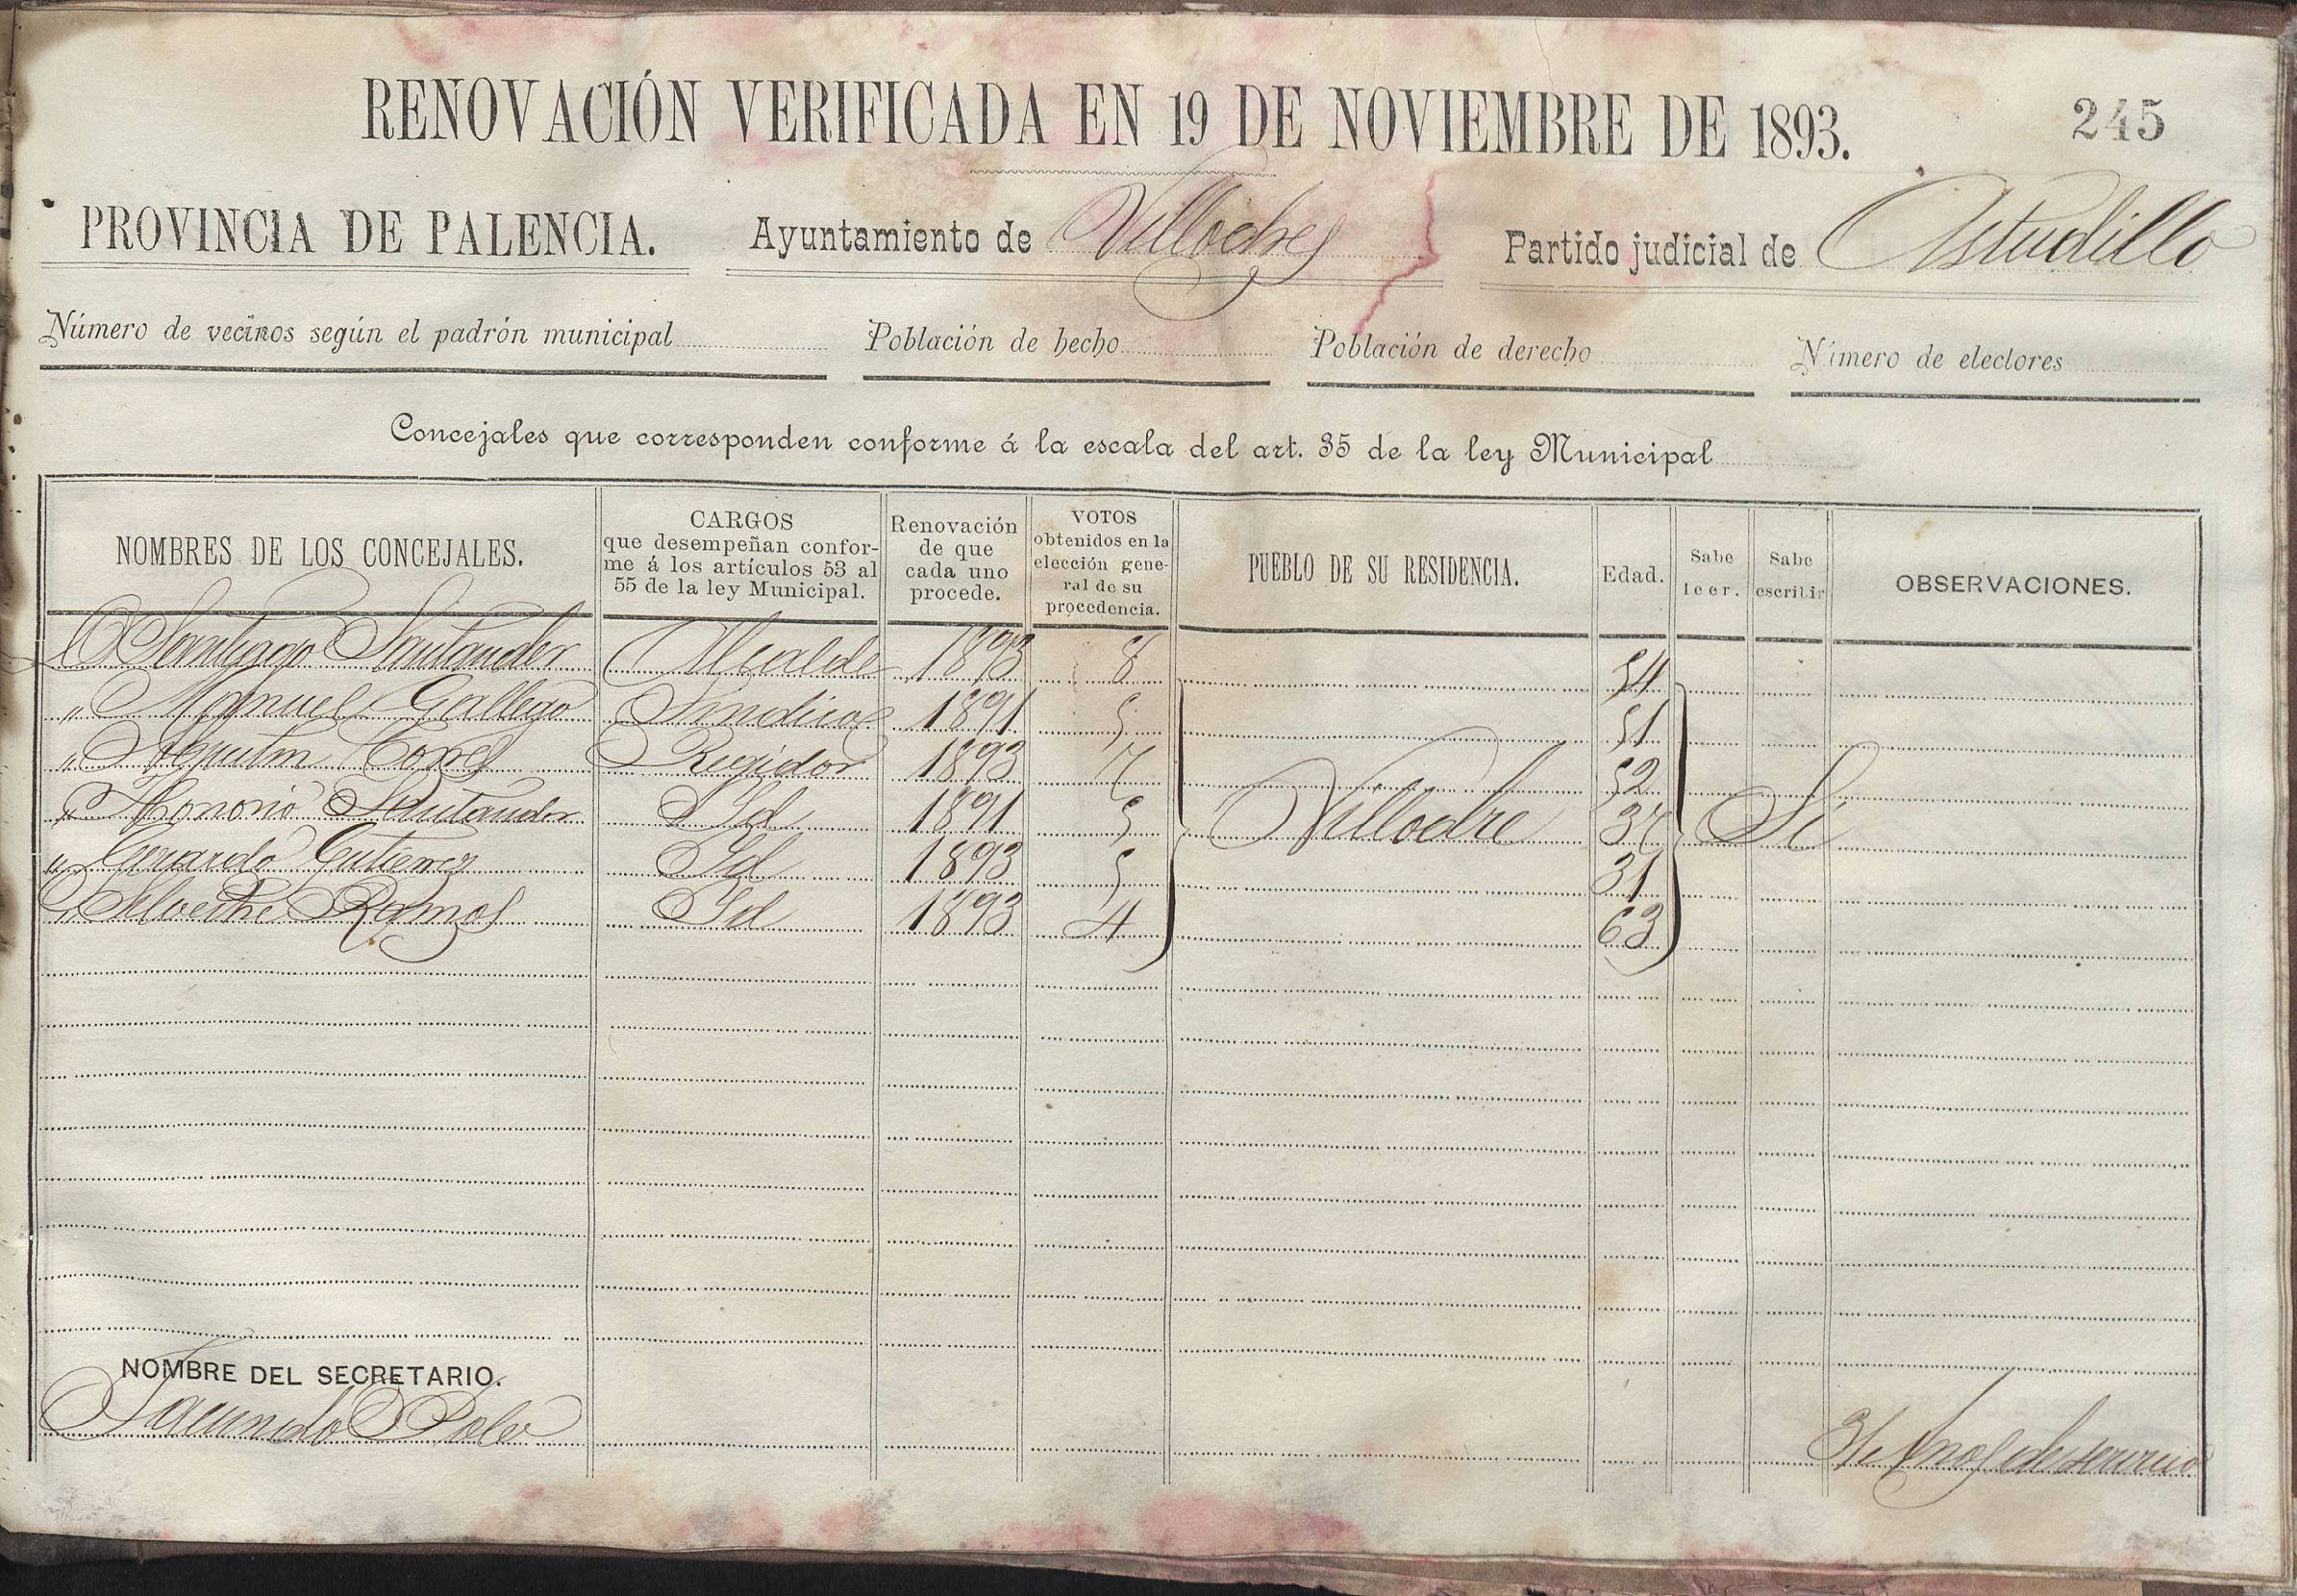 RENOVACIÓN VERIFICADA EN 19 DE NOVIEMBRE DE 1893. 245
PROVINCIA DE PALENCIA. Ayuntamiento de Villodre Partido judicial de Astudillo
Número de vecinos según el padrón municipal Población de hecho Población de derecho Número de electores
Concejales que corresponden conforme á la escala del art. 35 de la ley Municipal
NOMBRES DE LOS CONCEJALES. CARGOS que desempeñan conforme á los artículos 53 al 55 de la ley Municipal. Renovación de que cada uno procede. VOTOS obtenidos en la elección general de su procedencia. PUEBLO DE SU RESIDENCIA. Edad. Sabe leer. Sabe escribir OBSERVACIONES.
D Santiago Santander Alcalde 1893 8 54
" Manuel Gallego Sindico 1891 5 51
" Agustin Torres Regidor 1893 7 52
" Honorio Santander Id 1891 5 Villodre 37 Si
" Gerardo Gutierrez Id 1893 5 31
" Silvestre Ramos Id 1893 4 63
NOMBRE DEL SECRETARIO.
Facundo Polo años de servicio